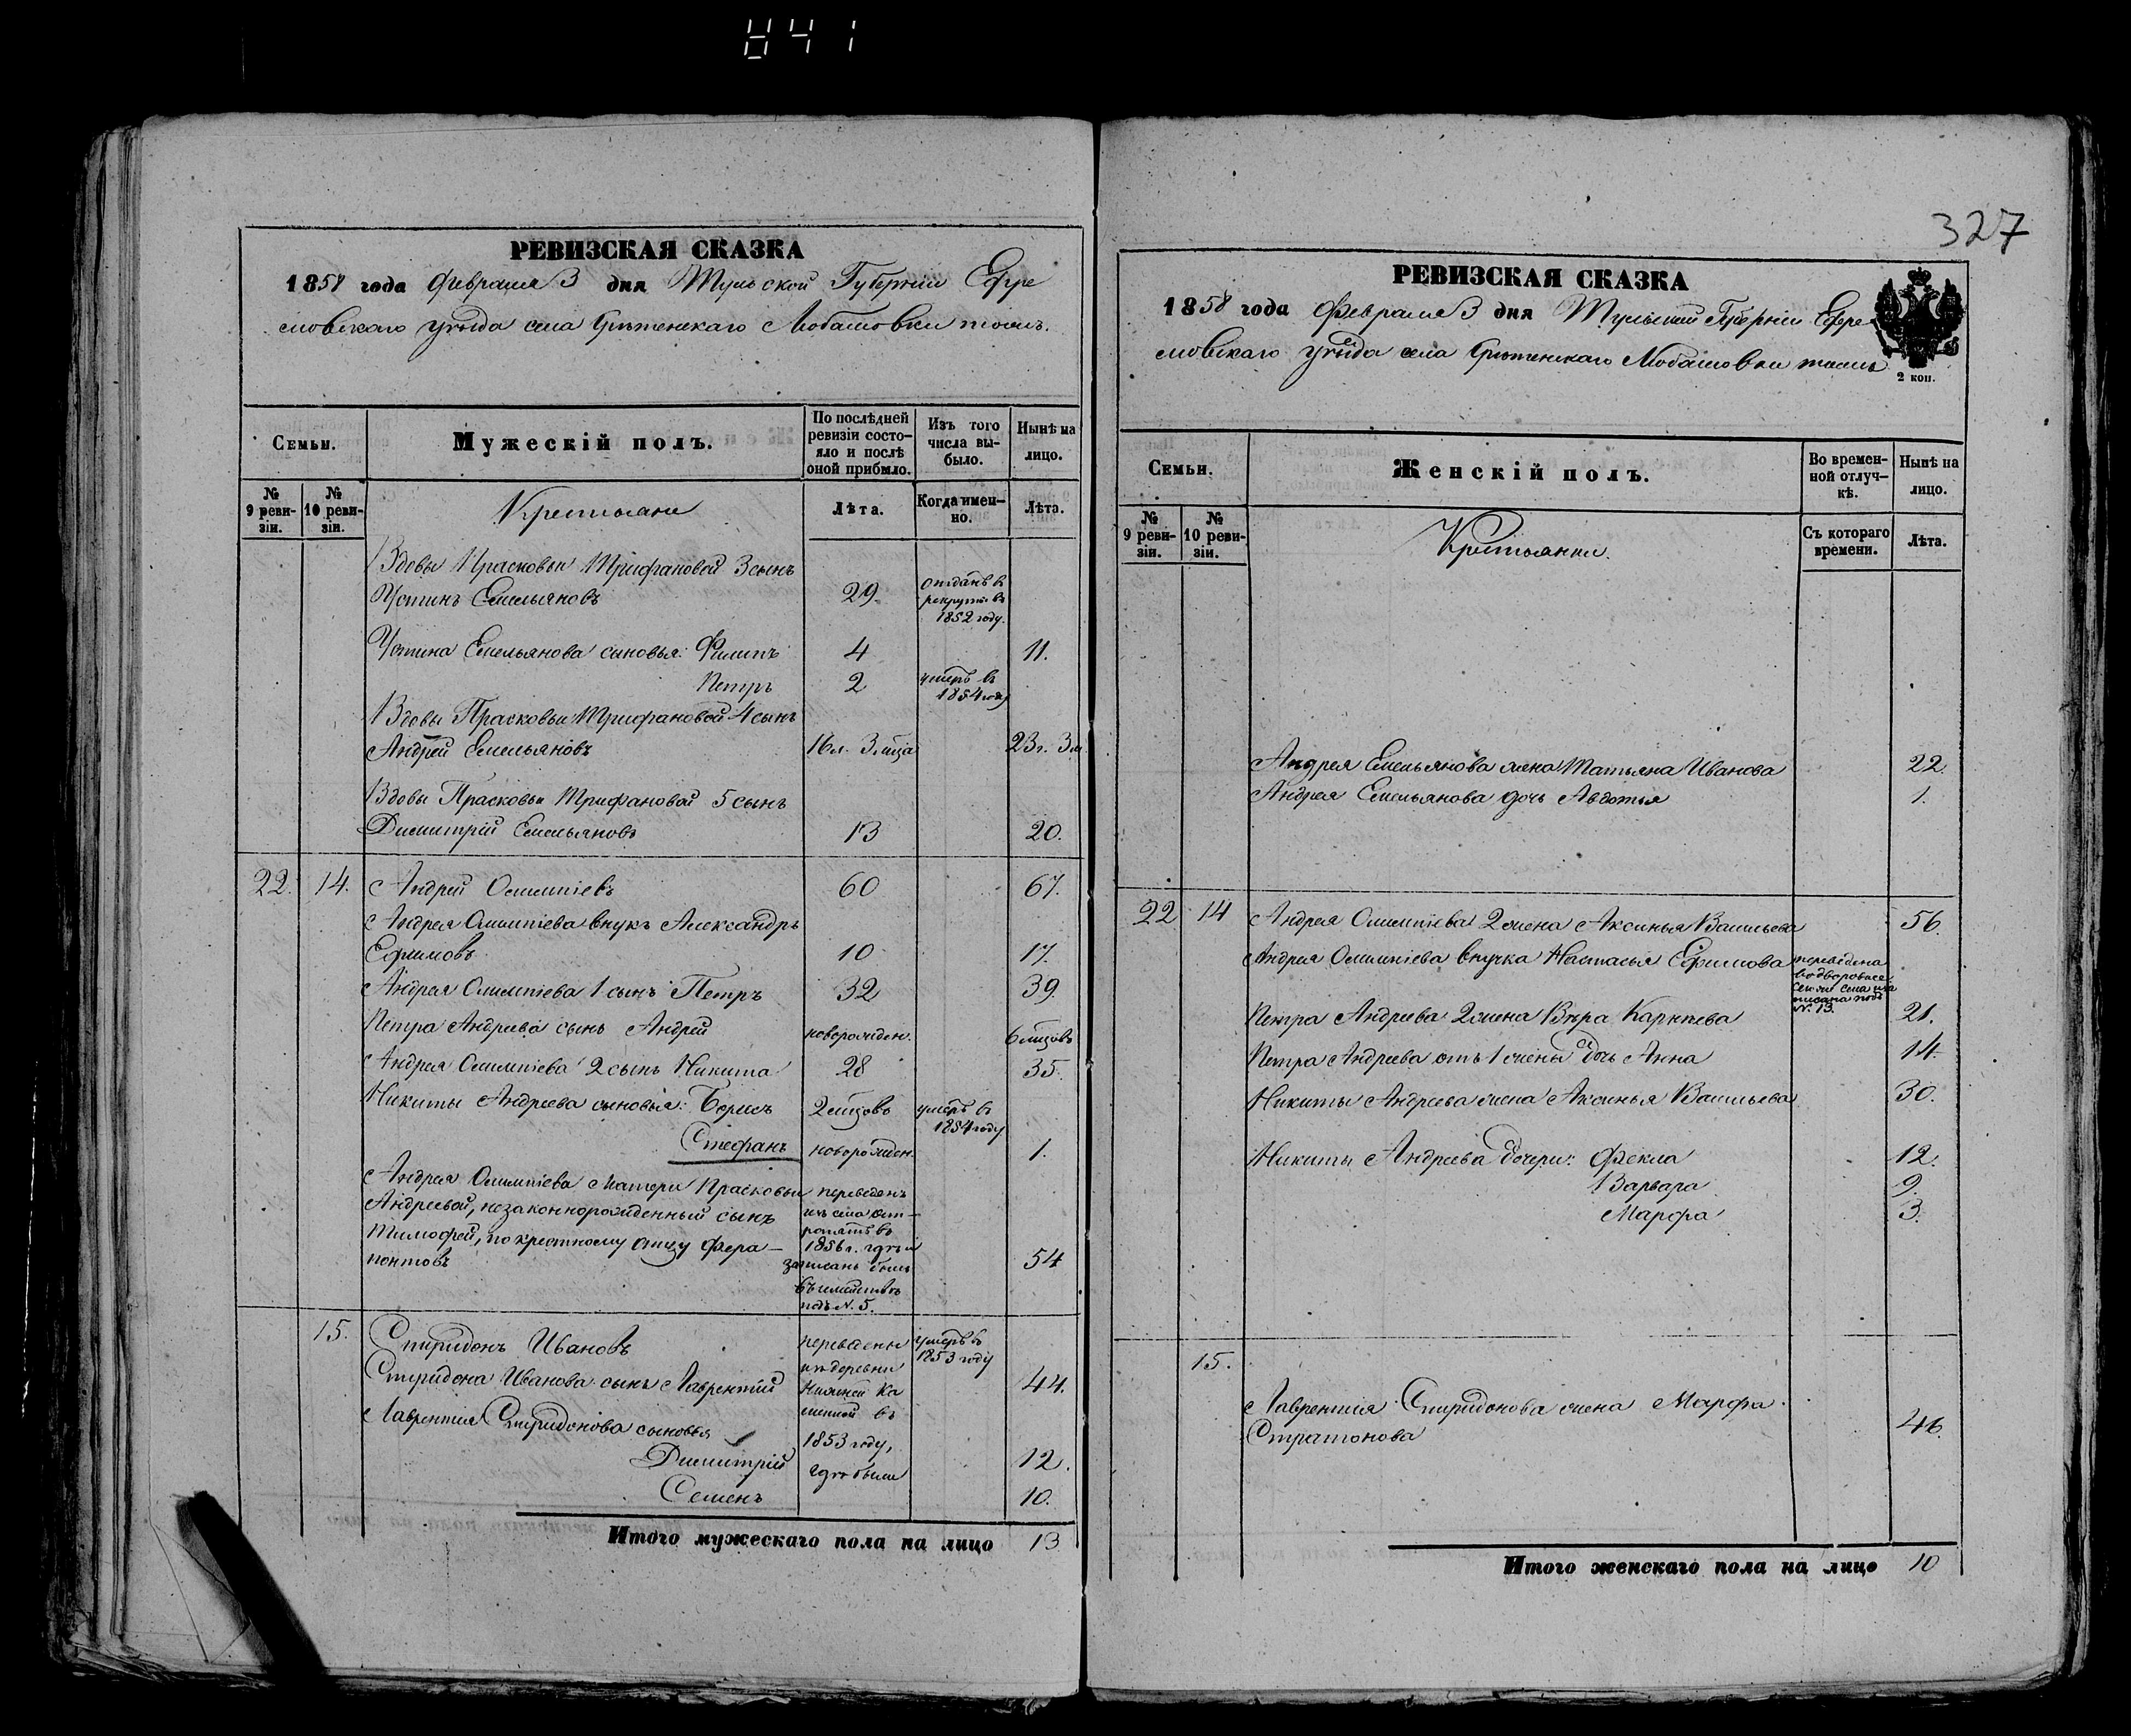 841
327
РЕВИЗСКАЯ СКАЗКА
1858 года Февраля 3 дня Тульской Губерніи Ефре
мовскаго уѣзда села Срѣтенскаго Лобановки тожъ.
Семьи.
Мужескій полъ.
По послѣдней ревизіи состо-
яло и послѣ оной прибыло.
Изъ того числа вы-
было.
Нынѣ на лицо.
№ 9 реви-
зіи.
№ 10 реви-
зіи.
Крестьяне
Лѣта.
Когда имен-
но.
Лѣта.
Вдовы Прасковьи Трифановой 3 сынъ
Устинъ Емельяновъ 29 отданъ в рекруты въ 1852 году.
Устина Емельянова сыновья: Филипъ 4 11.
Петръ 2 умеръ в 1854 году
Вдовы Прасковьи Трифановой 4 сынъ
Андрей Емельяновъ 16 л. 3 мца 23 г. 3 м
Вдовы Прасковьи Трифановой 5 сынъ
Димитрій Емельяновъ 13 20.
22. 14. Андрей Олимпіевъ 60 67.
Андрея Олимпіева внукъ Александръ
Ефимовъ 10 17.
Андрея Олимпіева 1 сынъ Петръ 32 39.
Петра Андреева сынъ Андрей новорожден. 6 мцовъ
Андрея Олимпіева 2 сынъ Никита 28 35.
Никиты Андреева сыновья: Борисъ 2 мцовъ умеръ в 1854 году
Стефанъ новорожден. 1.
Андрея Олимпіева матери Прасковьи
Андреевой, незаконнорожденный сынъ
Тимофей, по крестному отцу Фера-
понтовъ 54
переведенъ
изъ села
в
1856 г. гдѣ и
записанъ былъ
въ
подъ N. 5.
15. Спиридонъ Ивановъ умеръ в 1853 году
Спиридона Иванова сынъ Лаврентій 44.
Лаврентія Спиридонова сыновья
Димитрій 12.
Семенъ 10.
переведены
изъ деревни
Нижней Ка
менной въ
1853 году,
гдѣ были
Итого мужескаго пола на лицо 13
РЕВИЗСКАЯ СКАЗКА
1858 года Февраля 3 дня Тульской Губерніи Ефре-
мовскаго уѣзда села Срѣтенскаго Лобановки тожъ
2 коп.
Семьи.
Женскій полъ.
Во времен-
ной отлуч-
кѣ.
Нынѣ на лицо.
№ 9 реви-
зіи.
№ 10 реви-
зіи.
Крестьянки.
Съ котораго времени.
Лѣта.
Андрея Емельянова жена Татьяна Иванова 22.
Андрея Емельянова дочь Авдотья 1.
22 14 Андрея Олимпіева 2 жена Аксинья Васильева 56.
Андрея Олимпіева внучка Настасья Ефимова
переведена
в дворовые
сего села и за
писана подъ
N. 13.
Петра Андреева 2 жена Вѣра Карпѣева 21.
Петра Андреева отъ 1 жены дочь Анна 14.
Никиты Андреева жена Аксинья Васильева 30.
Никиты Андреева дочери: Фекла 12.
Варвара 9.
Марфа 3.
15.
Лаврентія Спиридонова жена Марфа
Стратонова 46.
Итого женскаго пола на лицо 10